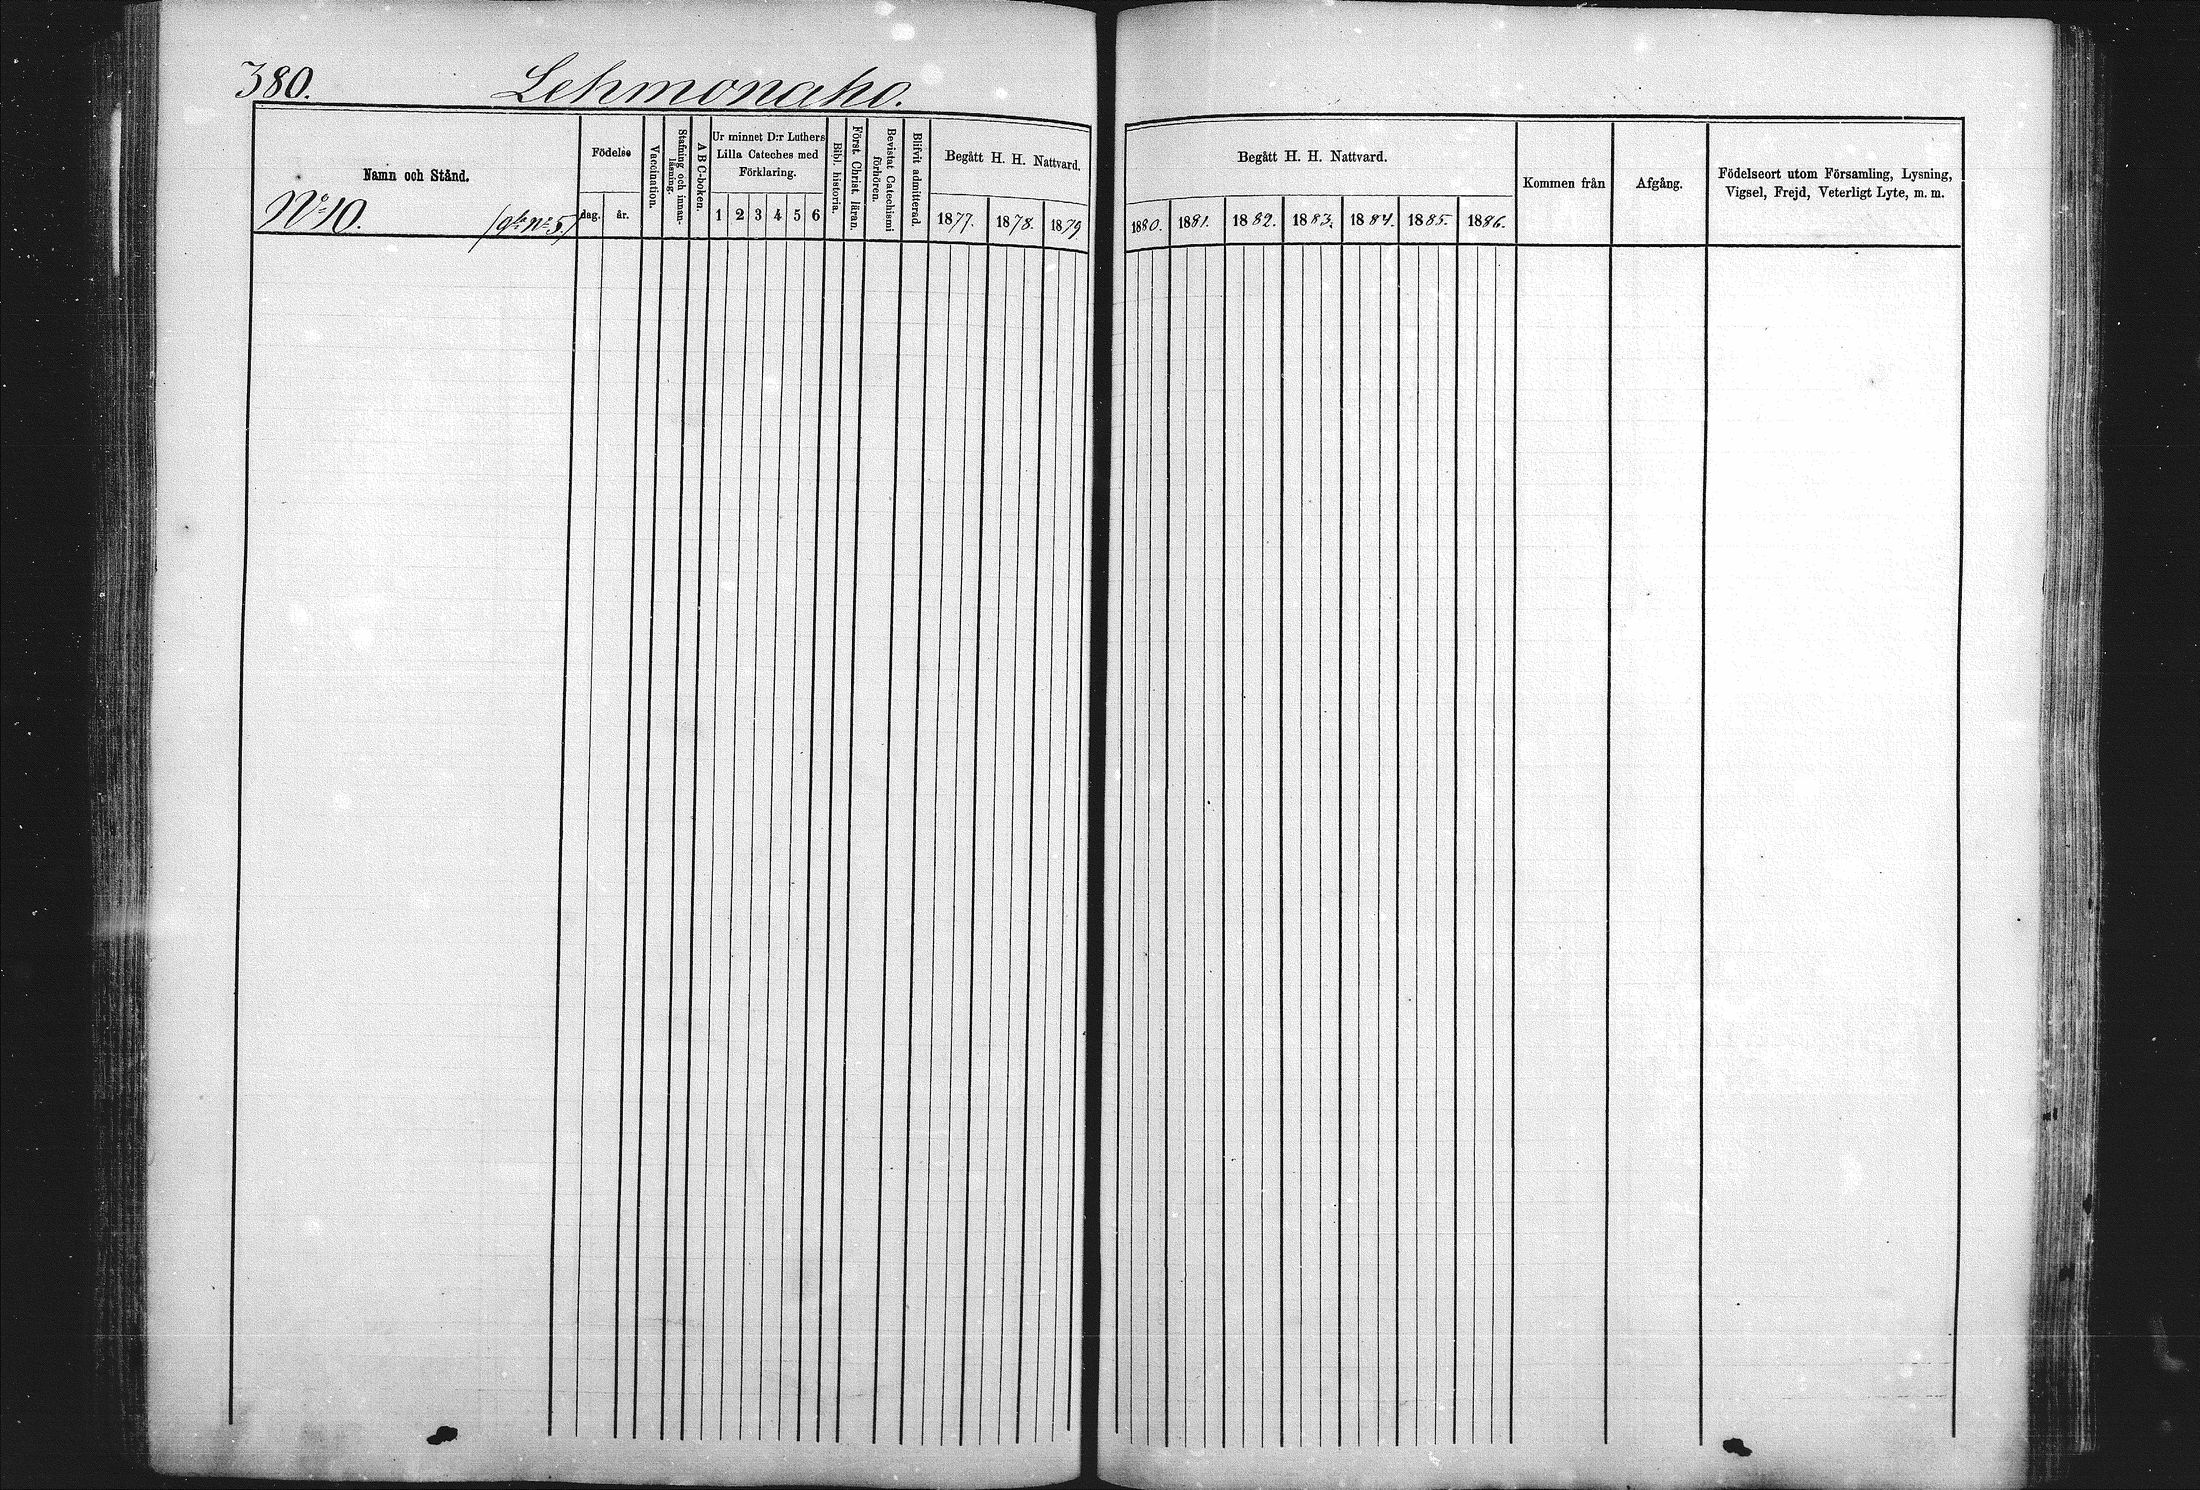 380. Lehmonaho.
Namn och Stånd.
No 10. /gla No 5./
Födelse
dag. år.
Vaccination.
Stafning och innan-
läsning.
A B C-boken.
Ur minnet D:r Luthers
Lilla Cateches med
Förklaring.
1 2 3 4 5 6
Bibl. historia.
Först. Christ. läran.
Bevistat Catechismi
förhören.
Blifvit admitterad.
Begått H. H. Nattvard.
1877. 1878. 1879.
Begått H. H. Nattvard.
1880. 1881. 1882. 1883. 1884. 1885. 1886.
Kommen från
Afgång.
Födelseort utom Församling, Lysning,
Vigsel, Frejd, Veterligt Lyte, m. m.